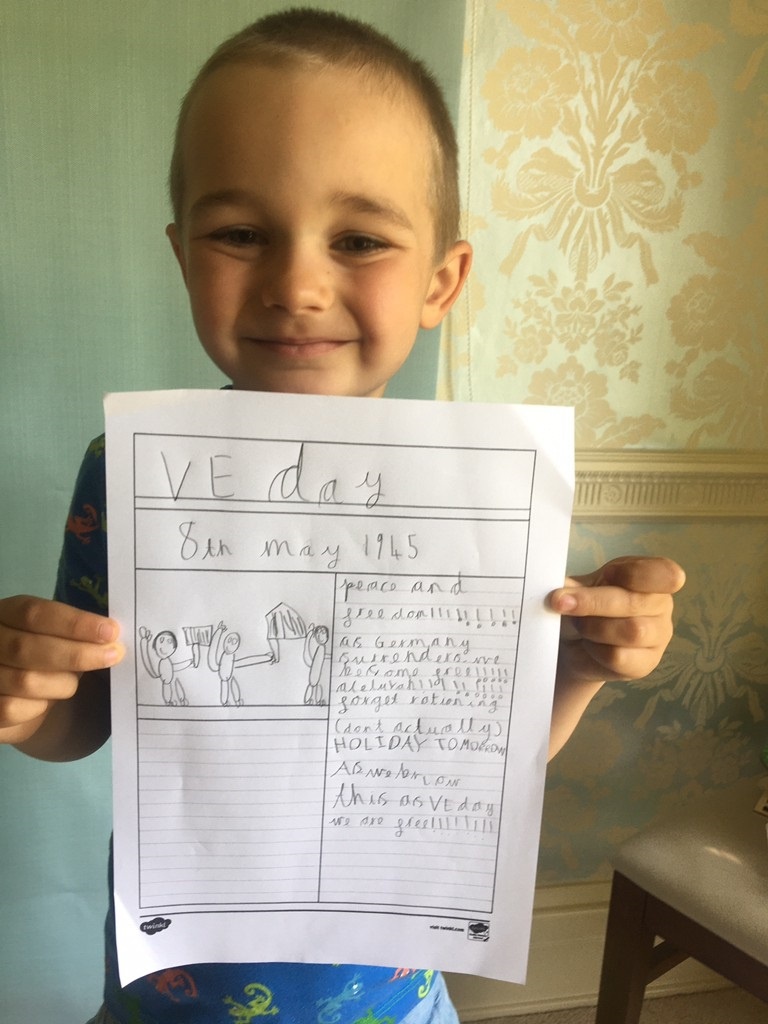 VE day
8th may 1945
peace and
freedom!!!!!!!!!!
as Germany
surrenders we
become free!!!!!
aleluah!!!!!!!!!!
forget rationing
(dont actually)
HOLIDAY TOMORROW
As we
this as VE day
we are free!!!!!!!!
twinkl
visit twinkl.com